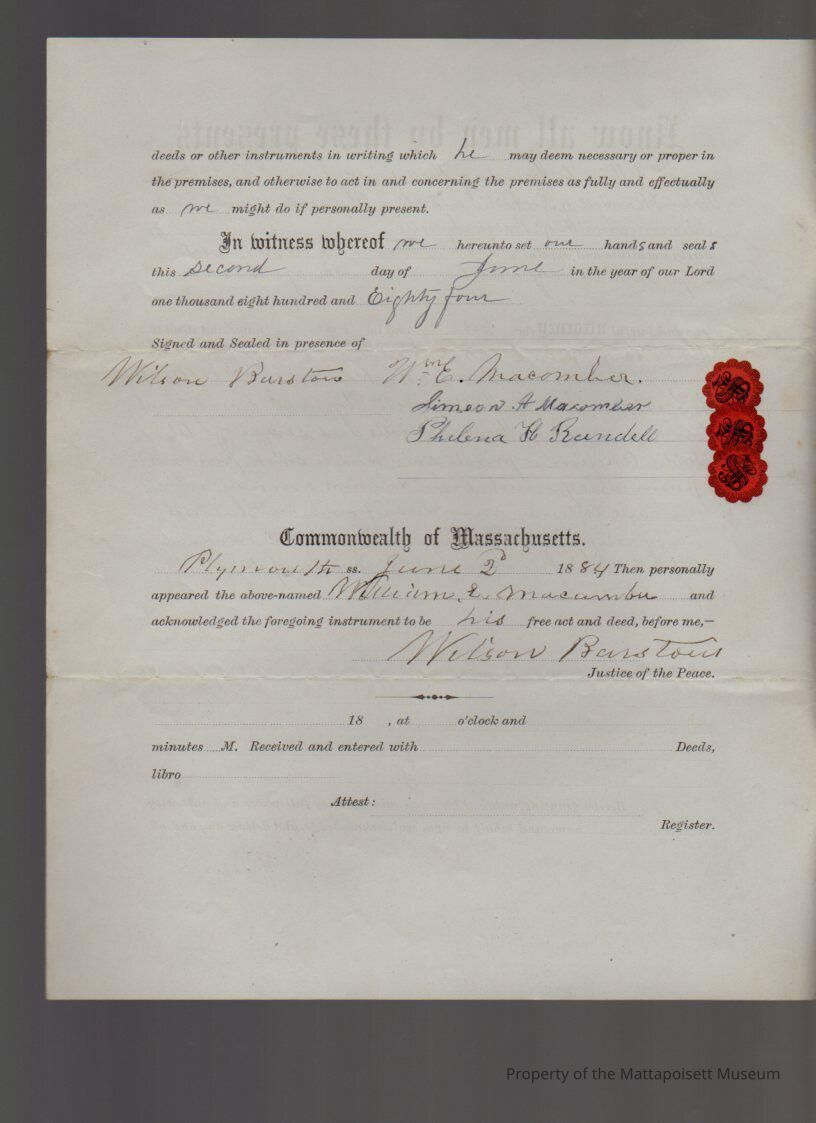 deeds or other instruments in writing which he may deem necessary or proper in
the premises, and otherwise to act in and concerning the premises as fully and effectually
as we might do if personally present.
In witness whereof we hereunto set our hands and seals
this second day of June in the year of our Lord
one thousand eight hundred and Eighty four
Signed and Sealed in presence of
Wilson Barstow Wm E. Macomber.
Simeon A Macomber
Philena H Randell
Commonwealth of Massachusetts.
Plymouth ss. June 2d 1884 Then personally
appeared the above-named William E. Macomber and
acknowledged the foregoing instrument to be his free act and deed, before me,—
Wilson Barstow
Justice of the Peace.
18 , at o'clock and
minutes M. Received and entered with Deeds,
libro
Attest:
Register.
Property of the Mattapoisett Museum